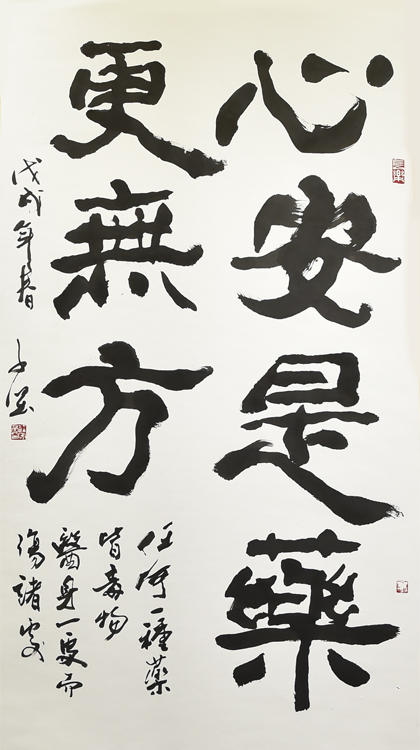 心安是藥
更無方
任何一種藥
皆毒物
醫身一處而
傷諸處
戊戌年春